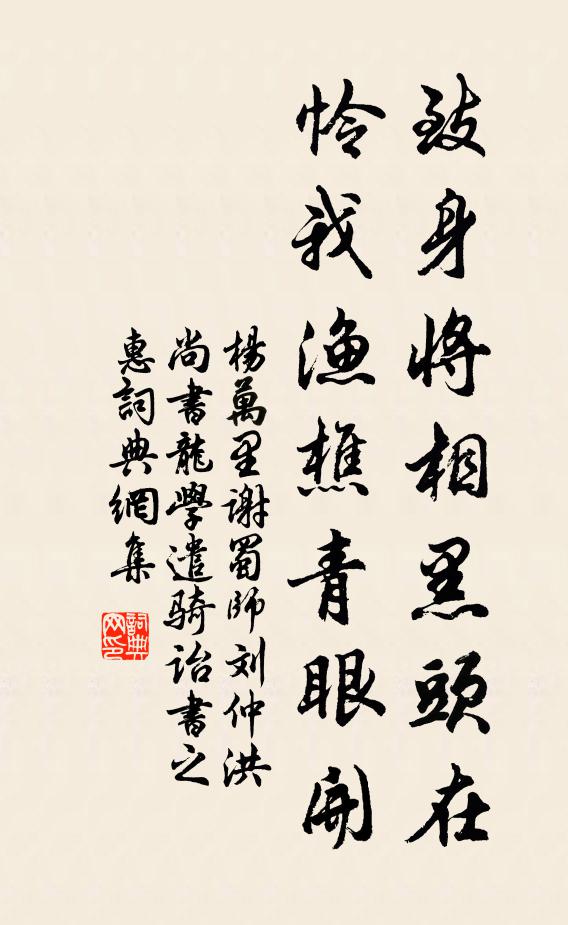 致身將相黑頭在
憐我漁樵青眼開
楊萬里謝蜀帅刘仲洪
尚書龍學遣騎詒書之
惠詞典網集
詞典网印